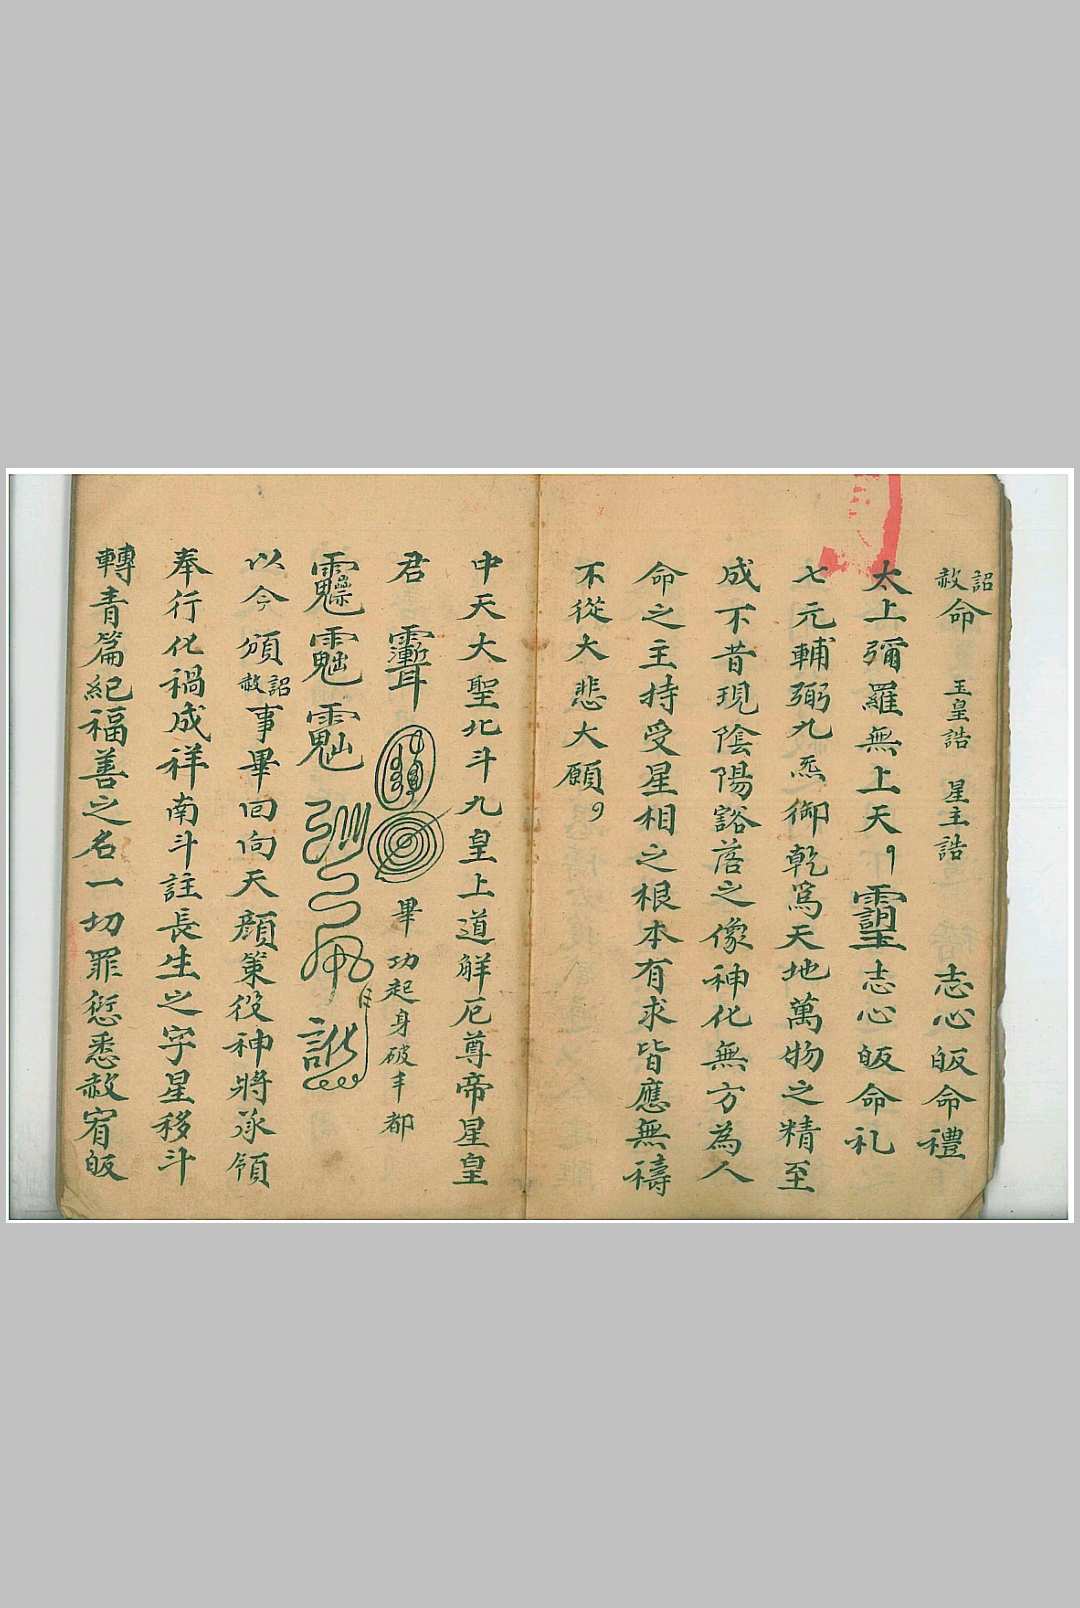 詔赦命 玉皇誥 星主誥 志心皈命禮
太上彌羅無上天 志心皈命礼
七元輔弼九炁御乾為天地萬物之精至
成不昔現陰陽豁落之像神化無方為人
命之主持受星相之根本有求皆應無禱
不從大悲大願
中天大聖北斗九皇上道解厄尊帝星皇
君 畢功起身破丰都
以今頒詔赦事畢回向天顏策役神將承領
奉行化禍成祥南斗註長生之字星移斗
轉青篇紀福善之名一切罪愆悉赦宥皈